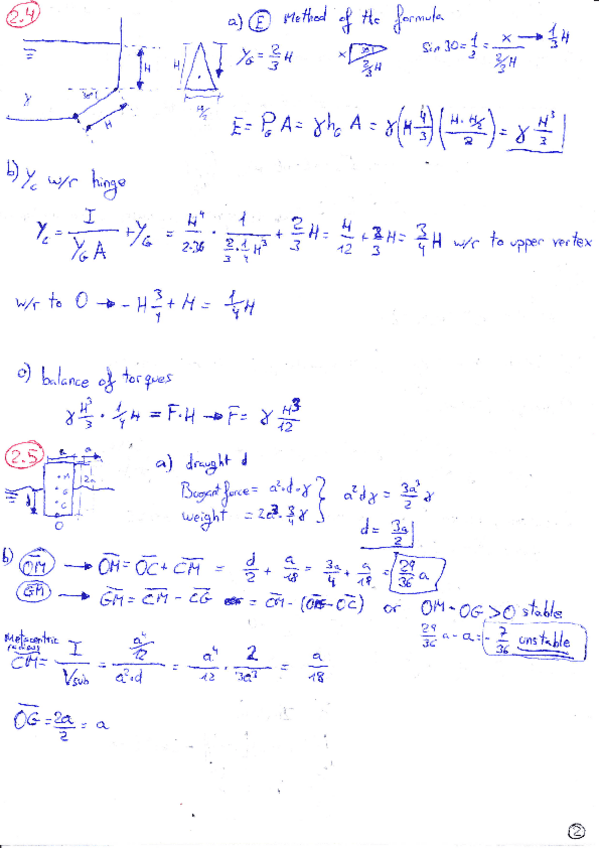 2.4
a) E Method of the formula
Y_G = 2/3 H
sin 30 = 1/3 = x / (2/3 H) → 1/3 H
E = P_G A = γ h_G A = γ (H 4/3) (H · H/2 / 2) = γ H³/3
b) Y_c w/r hinge
Y_c = I / (Y_G A) + Y_G = H⁴/(2·36) · 1 / (2/3 · 1/4 H³) + 2/3 H = H/12 + 2/3 H = 3/4 H w/r to upper vertex
w/r to O → - H 3/4 + H = 1/4 H
c) balance of torques
γ H³/3 · 1/4 H = F · H → F = γ H³/12
2.5
a) draught d
Boyant force = a² · d · γ
weight = 2a³ · 3/4 γ
a² d γ = 3a³/2 γ
d = 3a/2
b) OM → OM = OC + CM = d/2 + a/18 = 3a/4 + a/18 = 29/36 a
GM → GM = CM - CG = CM - (OG - OC) or OM - OG > 0 stable
29/36 a - a = - 7/36 unstable
Metacentric radius
CM = I / V_sub = (a⁴/12) / (a² · d) = a⁴/12 · 2/3a³ = a/18
OG = 2a/2 = a
2